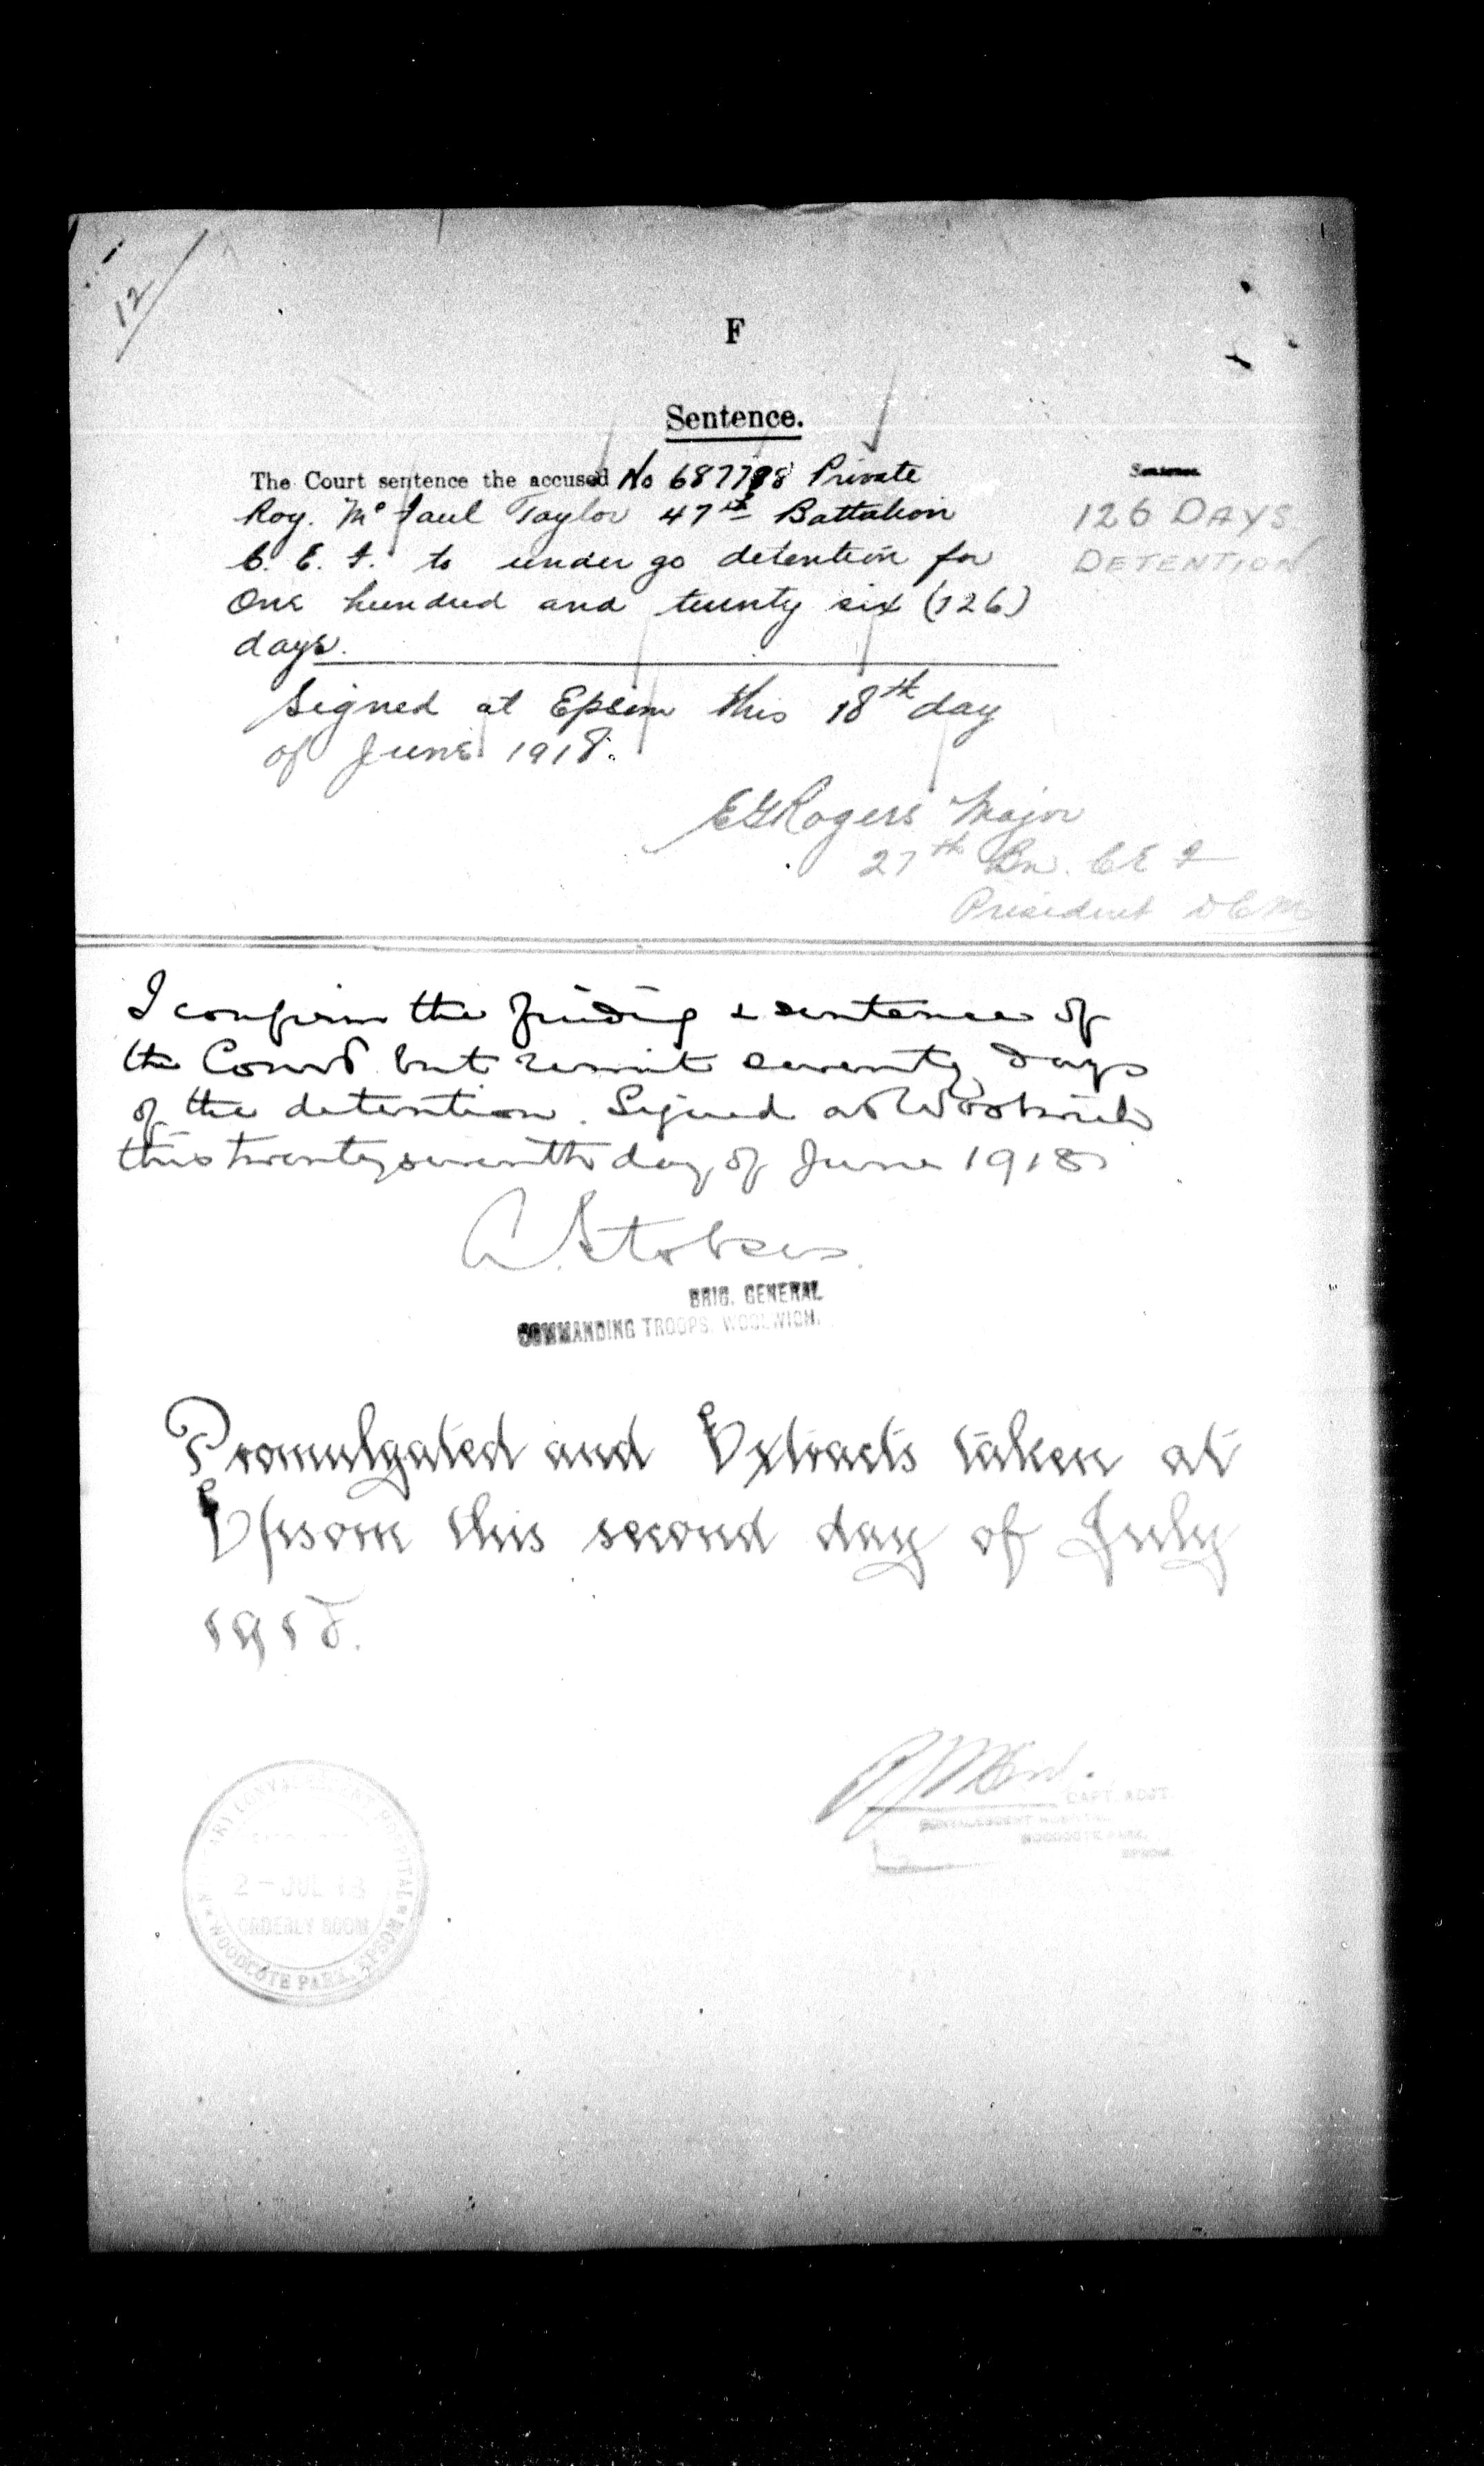 12
F
Sentence.
The Court sentence the accused No 687798 Private
Roy. Mc Faul Taylor 47th Battalion
C. E. F. to under go detention for
One hundred and twenty six (126)
days.
Sentence.
126 DAYS
DETENTION
Signed at Epsom this 18th day
of June 1918.
EGRogers Major
27th Bn. C E F
President D C M
I confirm the finding & sentence of
the Court but remit seventy days
of the detention. Signed at Woolwich
this twenty seventh day of June 1918
A. Stokes
BRIG. GENERAL
COMMANDING TROOPS, WOOLWICH.
Promulgated and Extracts taken at
Epsom this second day of July
1918.
CAPT. ADJT.
CONVALESCENT HOSPITAL
WOODCOTE PARK,
EPSOM.
CONVALESCENT HOSPITAL
2 - JUL 18
ORDERLY ROOM
WOODCOTE PARK, EPSOM